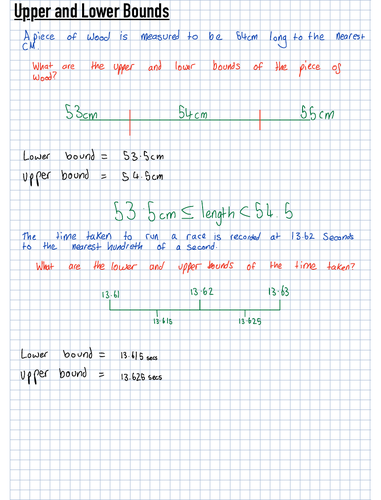 Upper and Lower Bounds
A piece of wood is measured to be 54cm long to the nearest
CM.
What are the upper and lower bounds of the piece of
wood?
53cm 54cm 55cm
Lower bound = 53.5cm
Upper bound = 54.5cm
53.5cm ≤ length < 54.5
The time taken to run a race is recorded at 13.62 Seconds
to the nearest hundreth of a second.
What are the lower and upper bounds of the time taken?
13.61 13.62 13.63
13.615 13.625
Lower bound = 13.615 secs
Upper bound = 13.625 secs